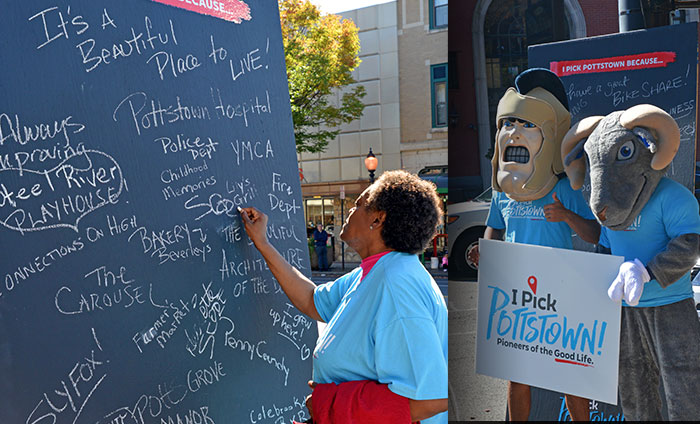 BECAUSE...
It's A
Beautiful
Place to
LIVE!
Pottstown Hospital
Police
Dept
YMCA
Childhood
Memories
Always
Improving
Steel River
PLAYHOUSE!
Fire
Dept.
CONNECTIONS ON HIGH
BAKERY
Beverleys
THE
ARCHITECTURE
OF THE
The
CAROUSEL
Farmer's
Market
I grew
up here
Penny Candy
SLY FOX!
GROVE
MANOR
Celebrate
I PICK POTTSTOWN BECAUSE...
have a great
BIKE SHARE!
I Pick
POTTSTOWN!
Pioneers of the Good Life.
I Pick
POTTSTOWN!